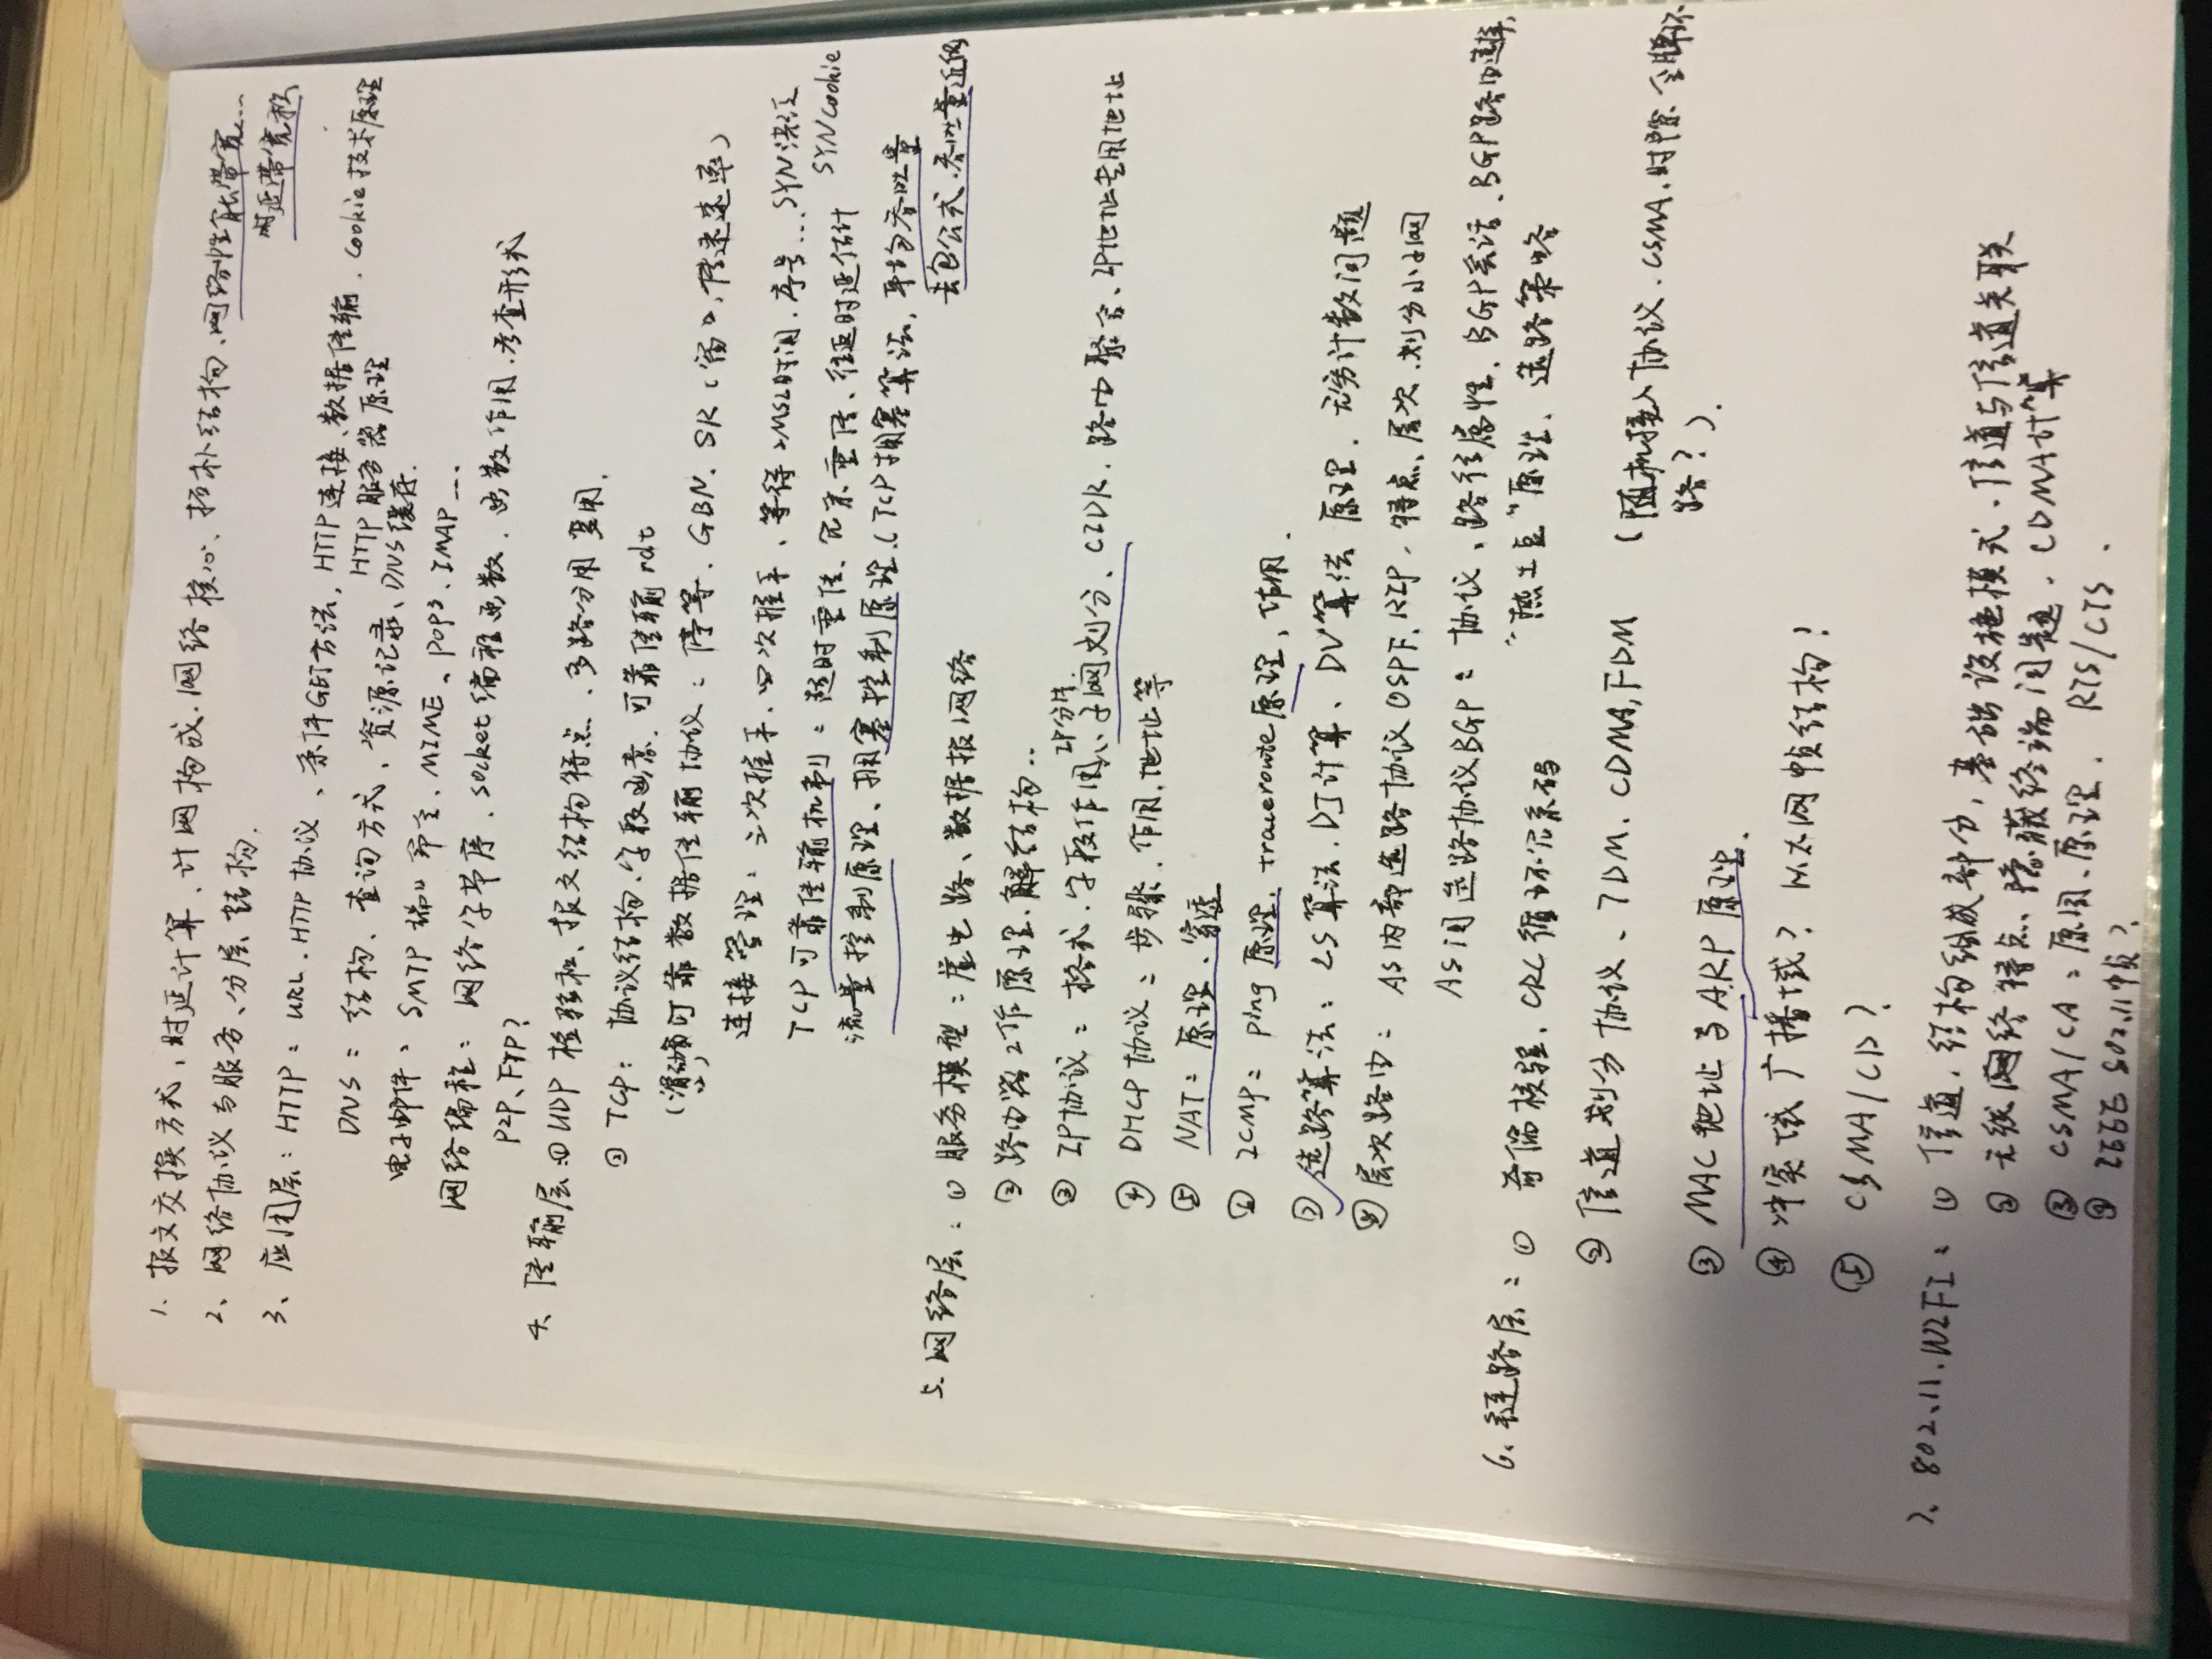 1、报文交换方式，时延计算、计网构成、网络核心、拓朴结构、网络性能带宽...
时延带宽积
2、网络协议与服务、分层结构.
3、应用层：HTTP：URL、HTTP协议、条件GET方法，HTTP连接、数据传输、cookie技术原理
HTTP服务器原理
DNS：结构、查询方式、资源记录、DNS缓存.
电子邮件：SMTP端口命令、MIME、POP3、IMAP...
网络编程：网络字节序、socket编程函数、函数作用、考查形式
P2P、FTP？
4、传输层：① UDP 检验和、报文结构特点、多路分用复用.
② TCP：协议结构、字段函意、可靠传输rdt
(滑动窗口) 可靠数据传输协议：停等、GBN、SR（窗口，传速速率）
连接管理：三次握手、四次握手、等待2MSL时间、序号...SYN洪泛
SYN cookie
TCP可靠传输机制：超时重传、冗余重传、往返时延估计
流量控制原理、拥塞控制原理（TCP拥塞算法，平均吞吐量
丢包公式、吞吐量近似
5、网络层：① 服务模型：虚电路、数据报网络
② 路由器工作原理、解结构..
③ IP协议：格式、字段作用、IP分片、子网划分、CIDR、路由聚合、IP地址专用地址
④ DHCP协议：步骤、作用、地址等
⑤ NAT：原理、穿透
⑥ ICMP：ping原理、traceroute原理，作用.
⑦ 选路算法：LS算法、DJ计算、DV算法原理、无穷计数问题
⑧ 层次路由：AS内部选路协议OSPF、RIP、特点、层次、划分小子网
AS间选路协议BGP：协议、路径属性、BGP会话、BGP路由选择，
“热土豆”原理、选路策略
6、链路层：① 奇偶校验、CRC循环冗余码
② 信道划分协议、TDM、CDMA, FDM （随机接入协议、CSMA、时隙 令牌环
路？）.
③ MAC地址与ARP原理.
④ 冲突域广播域？ 以太网帧结构！
⑤ CSMA/CD？
7、802.11.WIFI：① 信道、结构组成部分，基础设施模式、信道与信道关联
② 无线网络特点、隐藏终端问题、CDMA计算
③ CSMA/CA：原因、原理、RTS/CTS.
④ IEEE 802.11帧？